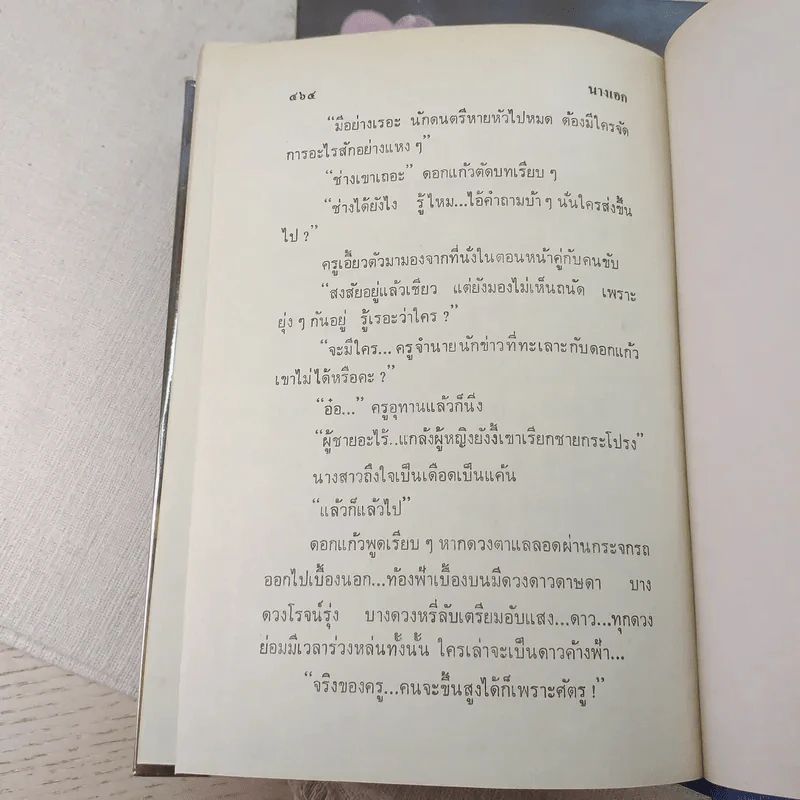 ๔๖๔ นางเอก
“มีอย่างเรอะ นักดนตรีหายหัวไปหมด ต้องมีใครจัด
การอะไรสักอย่างแหง ๆ”
“ช่างเขาเถอะ” ดอกแก้วตัดบทเรียบ ๆ
“ช่างได้ยังไง รู้ไหม...ไอ้คำถามบ้า ๆ นั่นใครส่งขึ้น
ไป ?”
ครูเอี้ยวตัวมามองจากที่นั่งในตอนหน้าคู่กับคนขับ
“สงสัยอยู่แล้วเชียว แต่ยังมองไม่เห็นถนัด เพราะ
ยุ่ง ๆ กันอยู่ รู้เรอะว่าใคร ?”
“จะมีใคร... ครูจำนายนักข่าวที่ทะเลาะกับดอกแก้ว
เขาไม่ได้หรือคะ ?”
“อ๋อ...” ครูอุทานแล้วก็นิ่ง
“ผู้ชายอะไร้..แกล้งผู้หญิงยังงี้เขาเรียกชายกระโปรง”
นางสาวถึงใจเป็นเดือดเป็นแค้น
“แล้วก็แล้วไป”
ดอกแก้วพูดเรียบ ๆ หากดวงตาแลลอดผ่านกระจกรถ
ออกไปเบื้องนอก...ท้องฟ้าเบื้องบนมีดวงดาวดาษดา บาง
ดวงโรจน์รุ่ง บางดวงหรี่ลับเตรียมอับแสง...ดาว...ทุกดวง
ย่อมมีเวลาร่วงหล่นทั้งนั้น ใครเล่าจะเป็นดาวค้างฟ้า...
“จริงของครู...คนจะขึ้นสูงได้ก็เพราะศัตรู !”